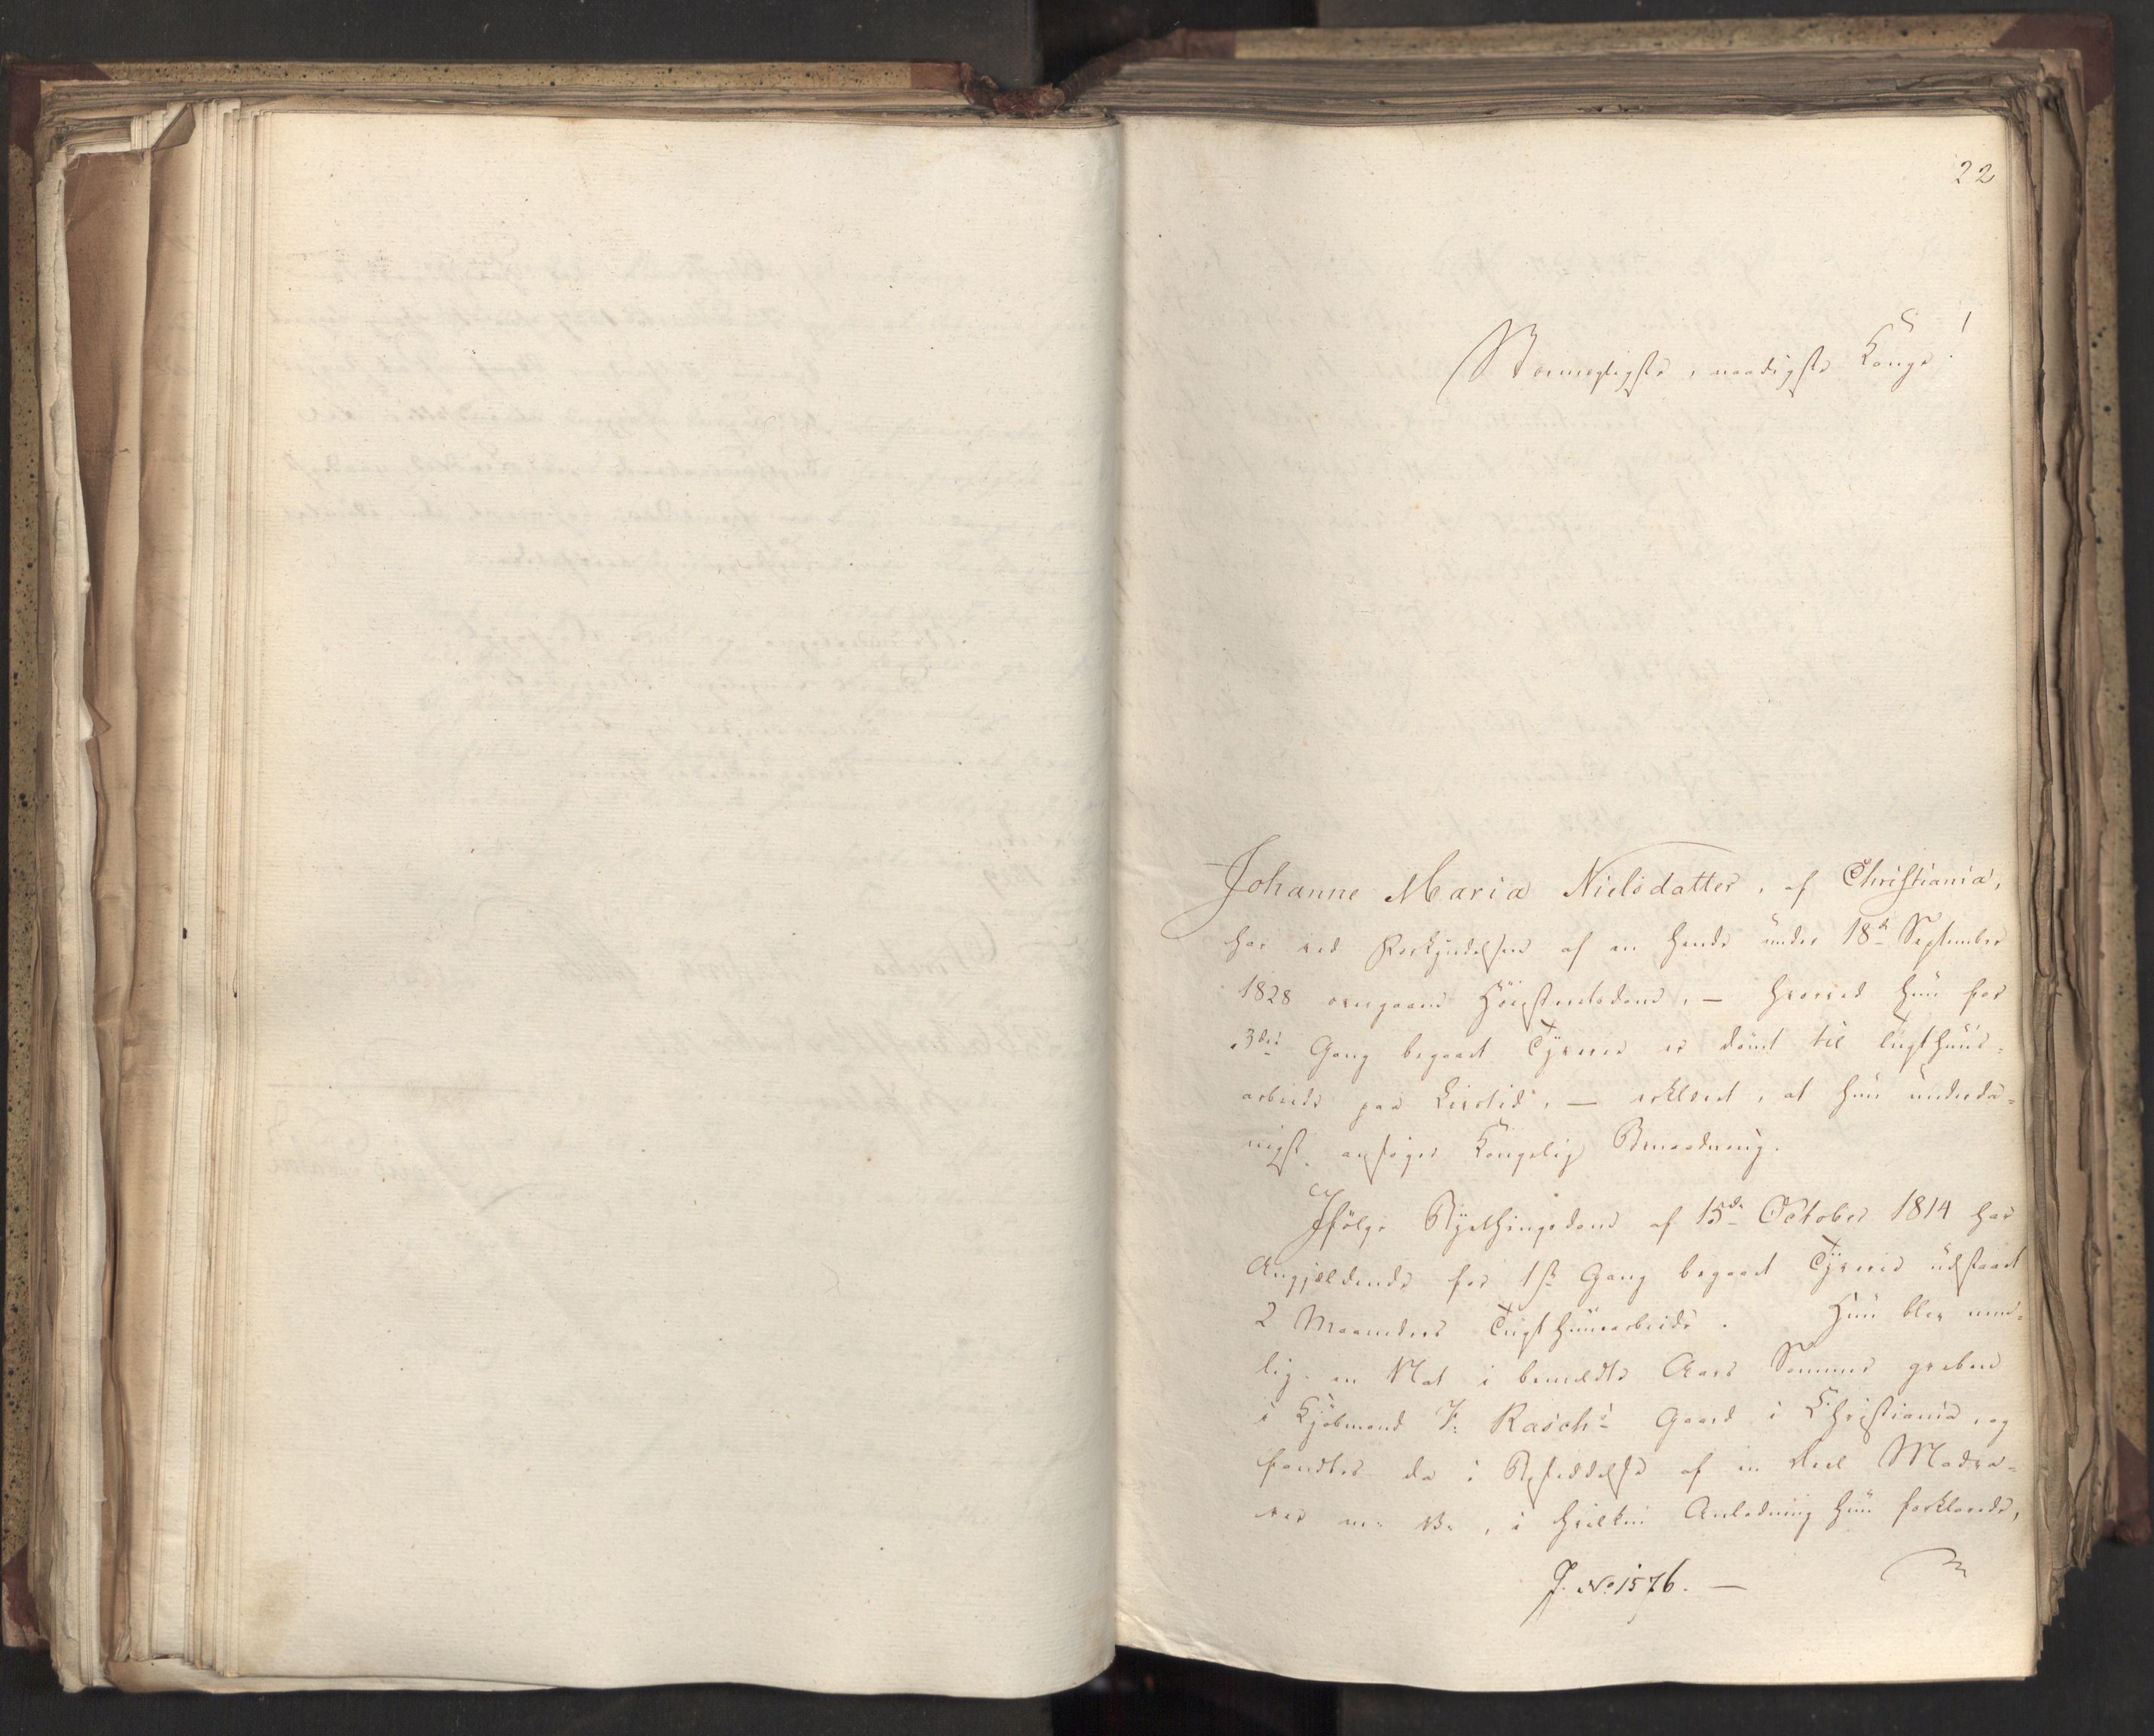 22
Stormægtigste, naadigste Konge!
Johanne Maria Nielsdatter, af Christiania,
har ved Forkyndelsen af en hende under 18d September
1828 overgaaen Høiesteretsdom, – hvorved hun for
3die Gang begaaet Tyverie er dømt til Tugthuus-
arbeide paa Livstid, – erklæret, at hun underda-
nigst ansøger Kongelig Benaadning.
Ifølge Byethingsdom af 15de October 1814 har
Angjældende for 1ste Gang begaaet Tyverie udstaaet
2 Maaneders Tugthuusarbeide. Hun blev nem-
lig en Nat i bemeldte Aars Sommer greben
i Kjøbmand J: Rasch's Gaard i Christiania, og
fandtes da i Besiddelse af en Deel Madva-
rer m: v:, i hvilken Anledning hun forklarede,
J. No 1576. –